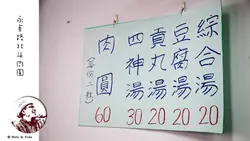 永樂路北斗肉圓
肉圓
(每份二粒)
60
四神湯
30
貢丸湯
20
豆腐湯
20
綜合湯
20